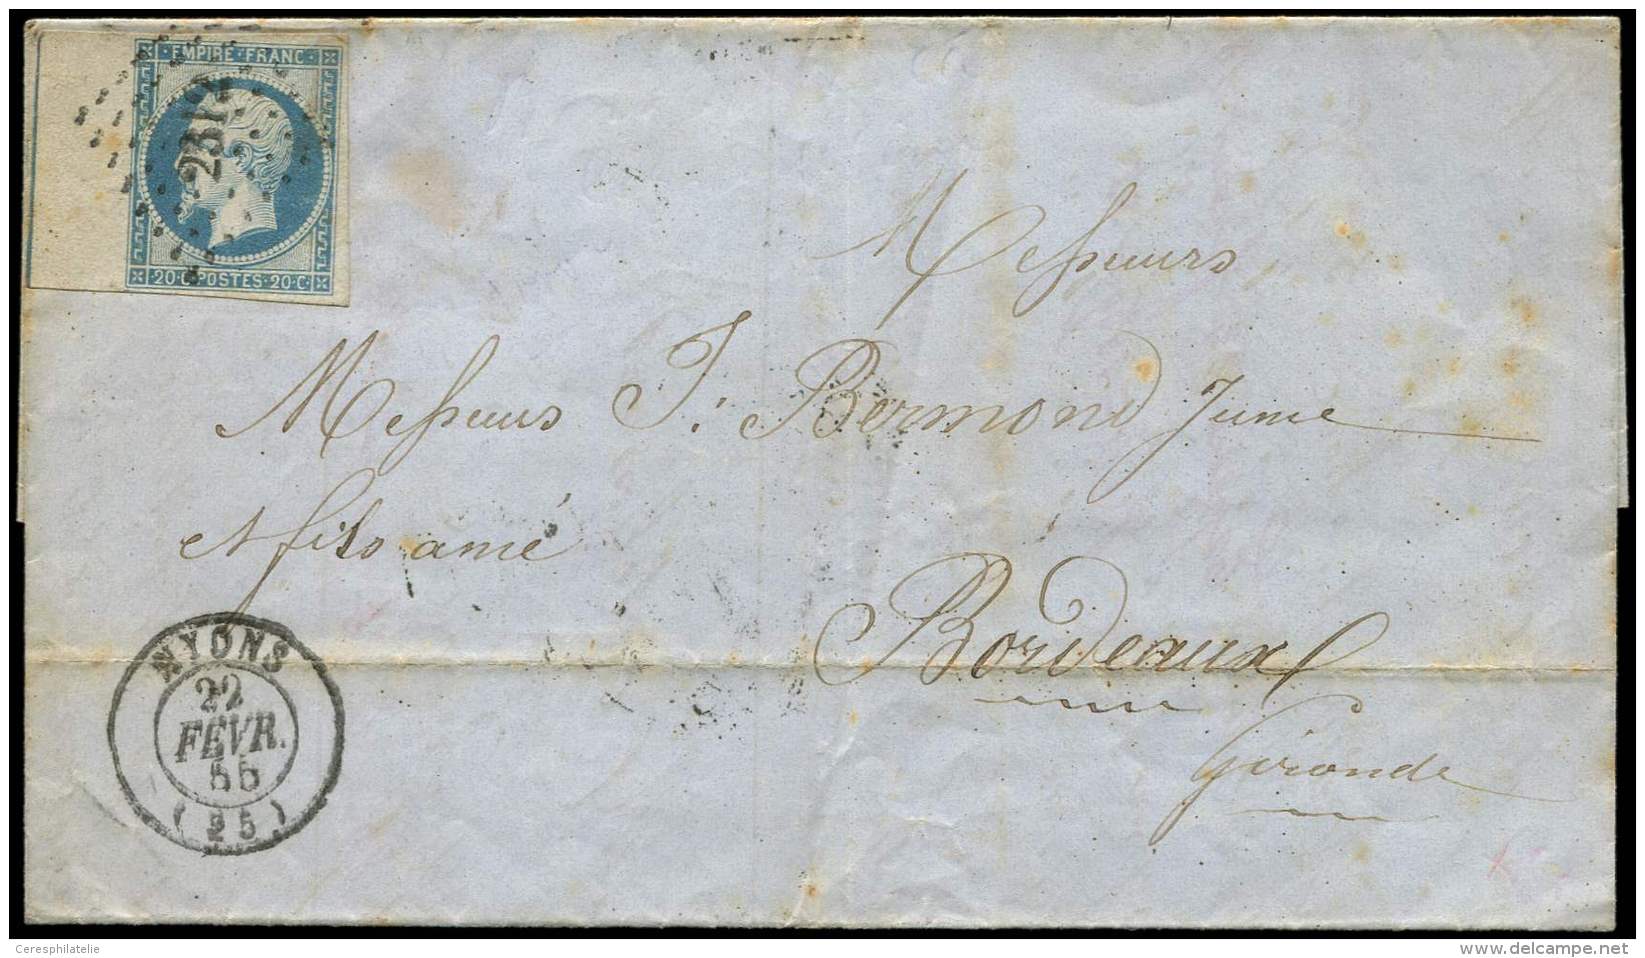 EMPIRE·FRANC·
2312
20·C·POSTES·20·C·
Messieurs
Messieurs J. Bermond Jeune
et fils ainé
Bordeaux
Gironde
NYONS
22
FÉVR.
55
(25)
Ceresphilatelie
delcampe.net